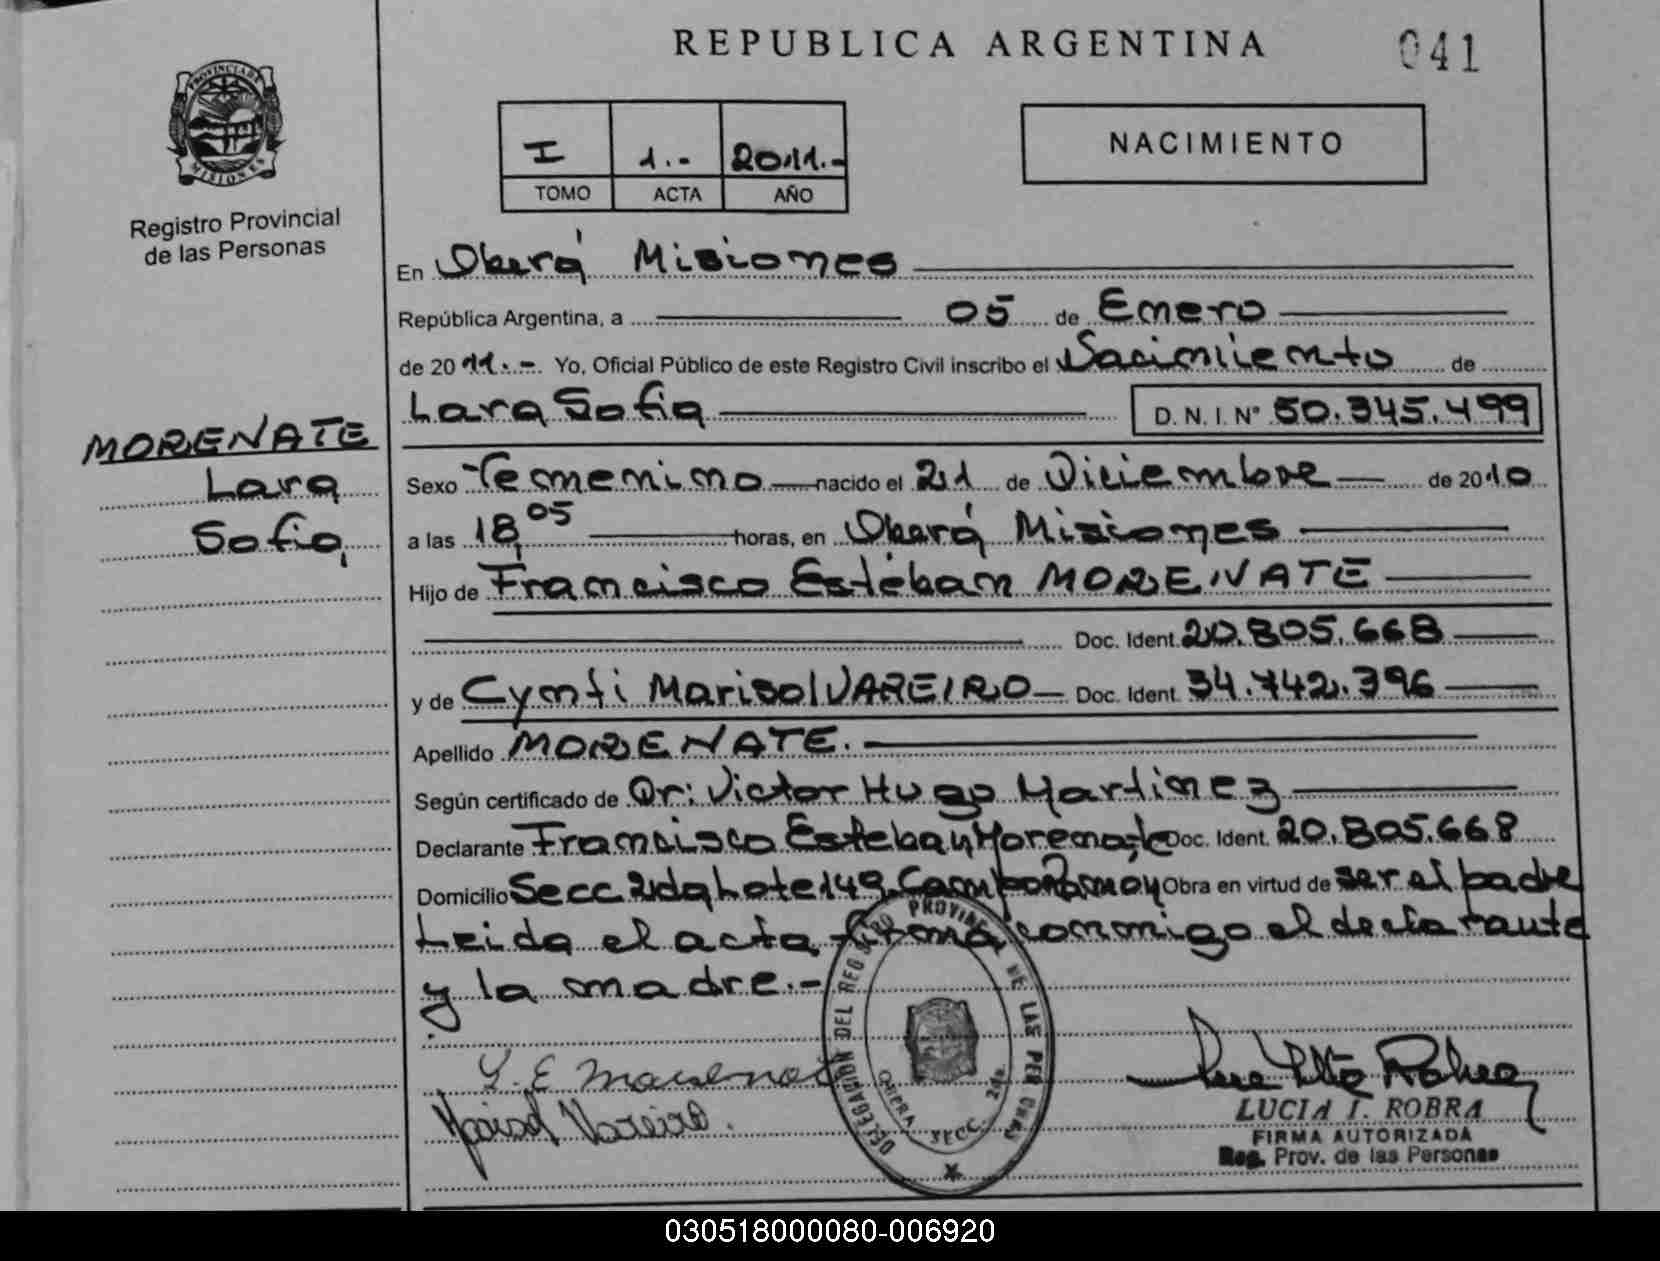 REPUBLICA ARGENTINA
041
PROVINCIA DE MISIONES
Registro Provincial
de las Personas
NACIMIENTO
I 1.- 2011.-
TOMO ACTA AÑO
En Oberá Misiones
República Argentina, a 05 de Enero
de 2011.- Yo, Oficial Público de este Registro Civil inscribo el Nacimiento de
Lara Sofia D. N. I. Nº 50.345.499
MORENATE
Lara
Sofia
Sexo Femenino nacido el 21 de Diciembre de 2010
a las 18,05 horas, en Oberá Misiones
Hijo de Francisco Esteban MORENATE
Doc. Ident. 20.805.668
y de Cynti Marisol VAREIRO Doc. Ident. 34.742.396
Apellido MORENATE.
Según certificado de Dr: Victor Hugo Martinez
Declarante Francisco Esteban Morenate Doc. Ident. 20.805.668
Domicilio Secc 2da Lote 149 Campo Ramon Obra en virtud de ser el padre
Leida el acta firma conmigo el declarante
y la madre.-
DELEGACION DEL REGISTRO PROVINCIAL DE LAS PERSONAS
OBERA SECC. 2da
Marisol Vareiro.
LUCIA I. ROBRA
FIRMA AUTORIZADA
Reg. Prov. de las Personas
030518000080-006920